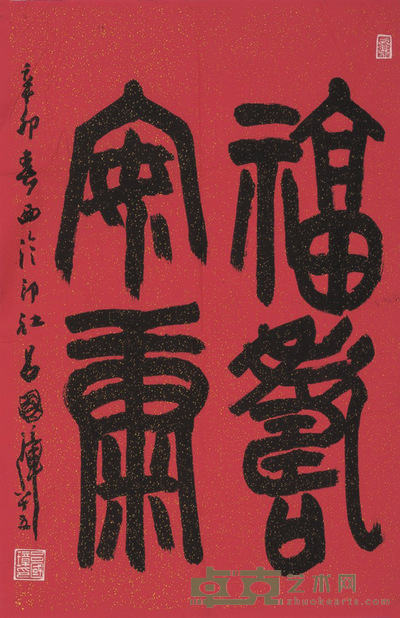 福壽
安康
辛卯春西泠印社吕國璋
卓克艺术网
zhuokearts.com